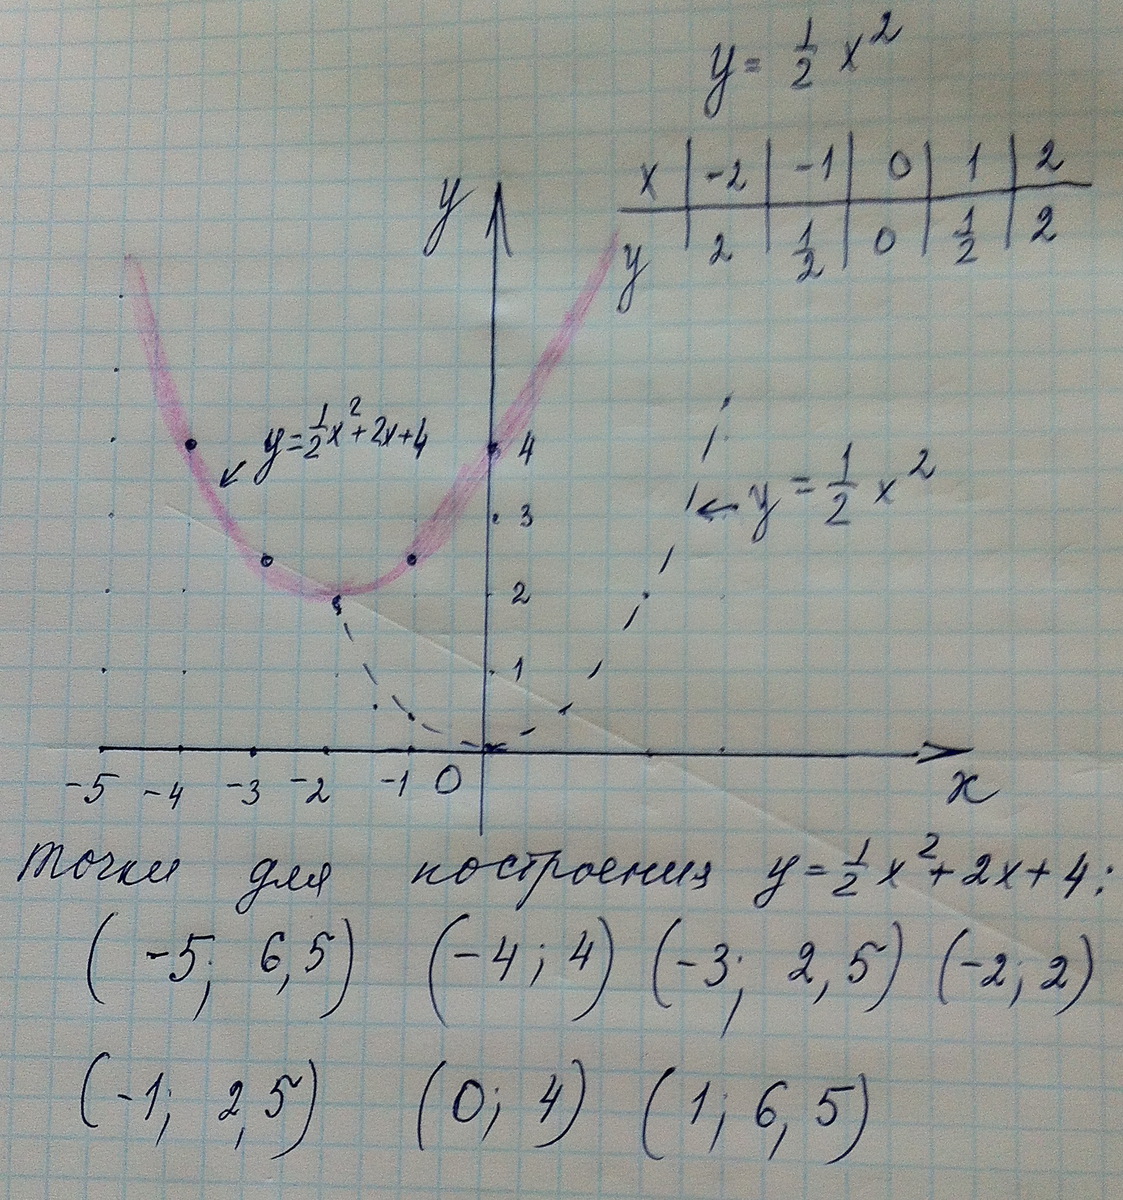 y = 1/2 x²
x | -2 | -1 | 0 | 1 | 2
y | 2 | 1/2 | 0 | 1/2 | 2
y
y = 1/2 x² + 2x + 4
4
y = 1/2 x²
3
2
1
-5 -4 -3 -2 -1 0 x
точки для построения y = 1/2 x² + 2x + 4:
(-5; 6,5) (-4; 4) (-3; 2,5) (-2; 2)
(-1; 2,5) (0; 4) (1; 6,5)